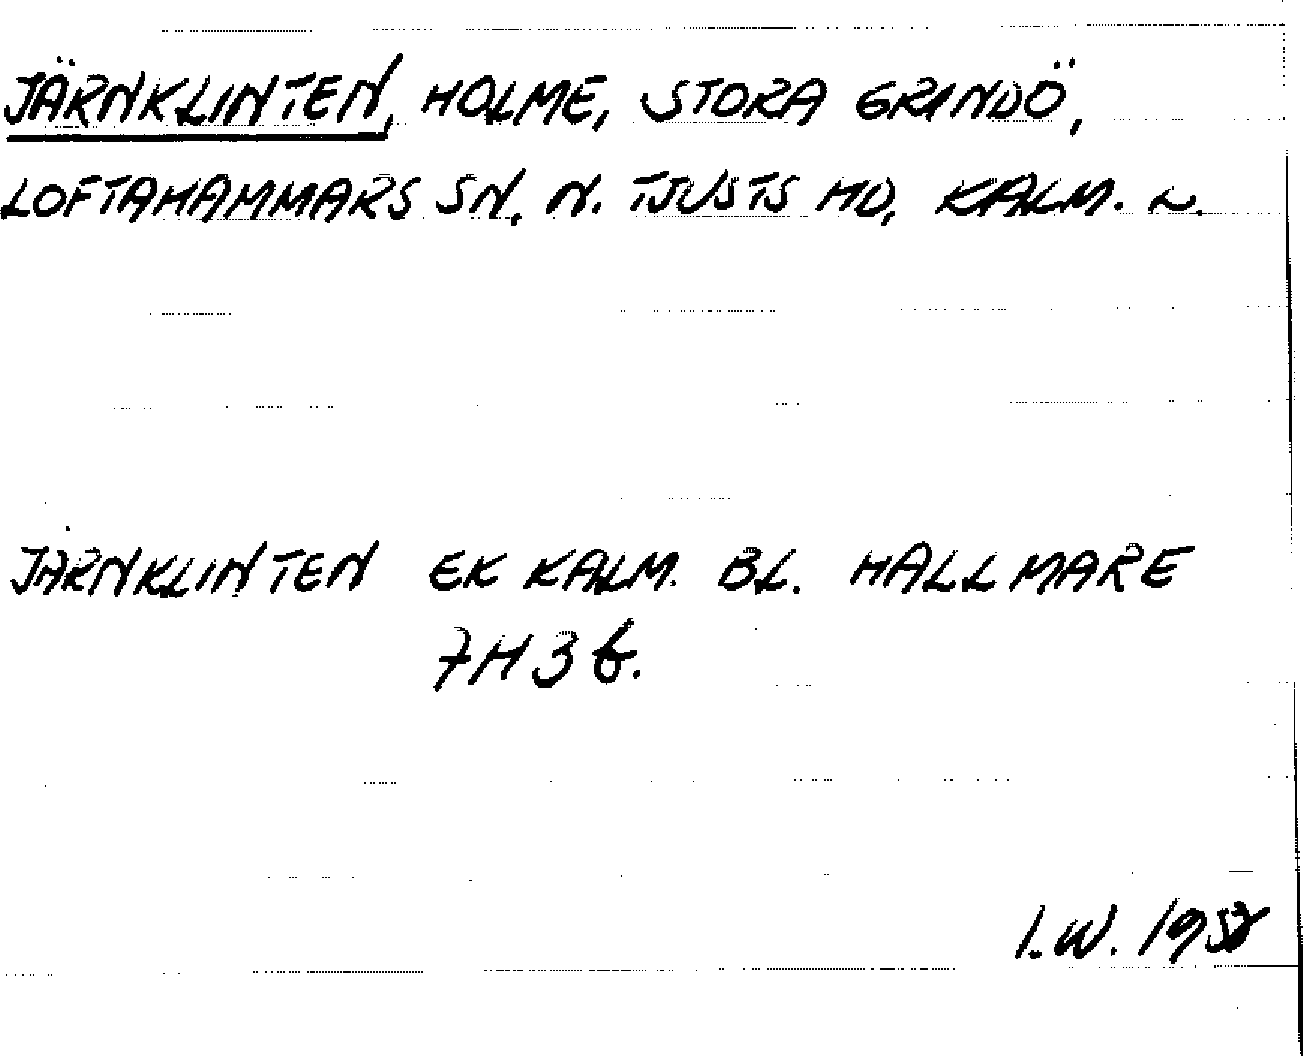 JÄRNKLINTEN, HOLME, STORA GRINDÖ,
LOFTAHAMMARS SN, N. TJUSTS HD, KALM. L.
JÄRNKLINTEN EK KALM. BL. HALLMARE
7H3b.
I.W.